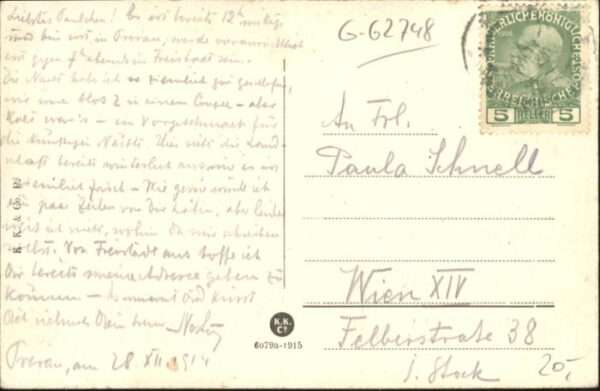 Liebstes Paulchen! Es ist bereits 12h mittags
und bin erst in Prerau, werde voraussichtlich
erst gegen 7h abends in Freistadt sein.
Die Nacht habe ich ziemlich gut geschlafen,
wir waren blos 2 in einem Coupé – aber
kalt war's – ein Vorgeschmack für
die künftigen Nächte. Hier sieht die Land-
schaft bereits winterlich aus, es ist
ziemlich frisch – Wie gerne würde ich
ein paar Zeilen von Dir haben, aber leider
weiß ich nicht, wohin Du mir schreiben
sollst. Von Freistadt aus hoffe ich
Dir bereits meine Adresse geben zu
können –
Prerau, am 28 XII 1914
G-62748
KAISERLICHE KÖNIGLICHE
ÖSTERREICHISCHE POST
5 HELLER 5
An Frl.
Paula Schnell
Wien XIV
Felberstraße 38
1. Stock
20,-
K.K.
6079a-1915